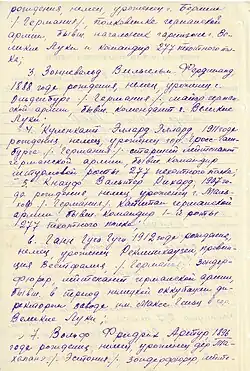 рождения, немец, уроженец г. Берлин
/Германия/, полковник германской
армии, бывш. начальник гарнизона г. Ве-
ликие Луки и командир 277 пехотного пол-
ка;
3. Зоненвальд Вильгельм Фердинанд
1888 года рождения, немец, уроженец г.
/Германия/, майор герман-
ской армии, бывш. комендант г. Великие
Луки;
4. Эллард Эллард 1911 года
рождения, немец, уроженец гор.
/Германия/, старший лейтенант
германской армии, бывш. командир
штурмовой роты 277 пехотного полка;
5. Кнауф Вальтер Рихард, 19
да рождения, немец, уроженец г.
/Германия/, капитан германской
армии, бывш. командир 1-й роты
277 пехотного полка;
6. Ганн Гуго Гуго 1912 года рождения,
немец, уроженец Реклингхаузен прови-
нция Вестфалия, /Германия/, зондер-
фюрер, лейтенант германской армии,
бывш. в период немецкой оккупации ди-
ректором совхоза им. Макс Гельц в гор.
Великие Луки;
7. Вольф Фридрих Артур 18
года рождения, немец, уроженец дер.
/Эстония/, зондерфюрер,